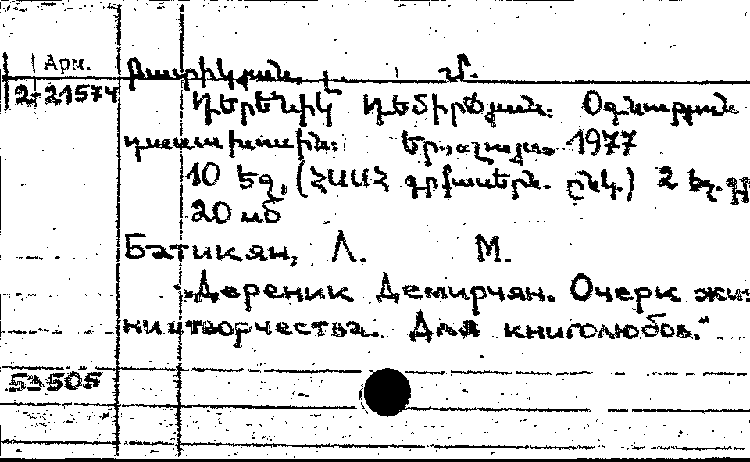 Арм.
2-21574
Բատիկյան, Լ. Մ.
Դերենիկ Դեմիրճյան. Օգնություն
դասատուին: Երևան, 1977
10 եջ, (ՀՍՍՀ գրքասեր. ընկ.) 2 եջ. գ
20 մծ
Батикян, Л. М.
"Дереник Демирчян. Очерк жиз
ни и творчества. Для книголюбов."
53505